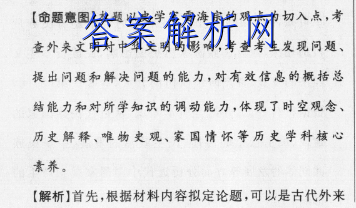 【命题意图】本题以史学家雷海宗的观点为切入点，考
答案解析网
查外来文明对中华文明的影响，考查考生发现问题、
提出问题和解决问题的能力，对有效信息的概括总
结能力和对所学知识的调动能力，体现了时空观念、
历史解释、唯物史观、家国情怀等历史学科核心
素养。
【解析】首先，根据材料内容拟定论题，可以是古代外来